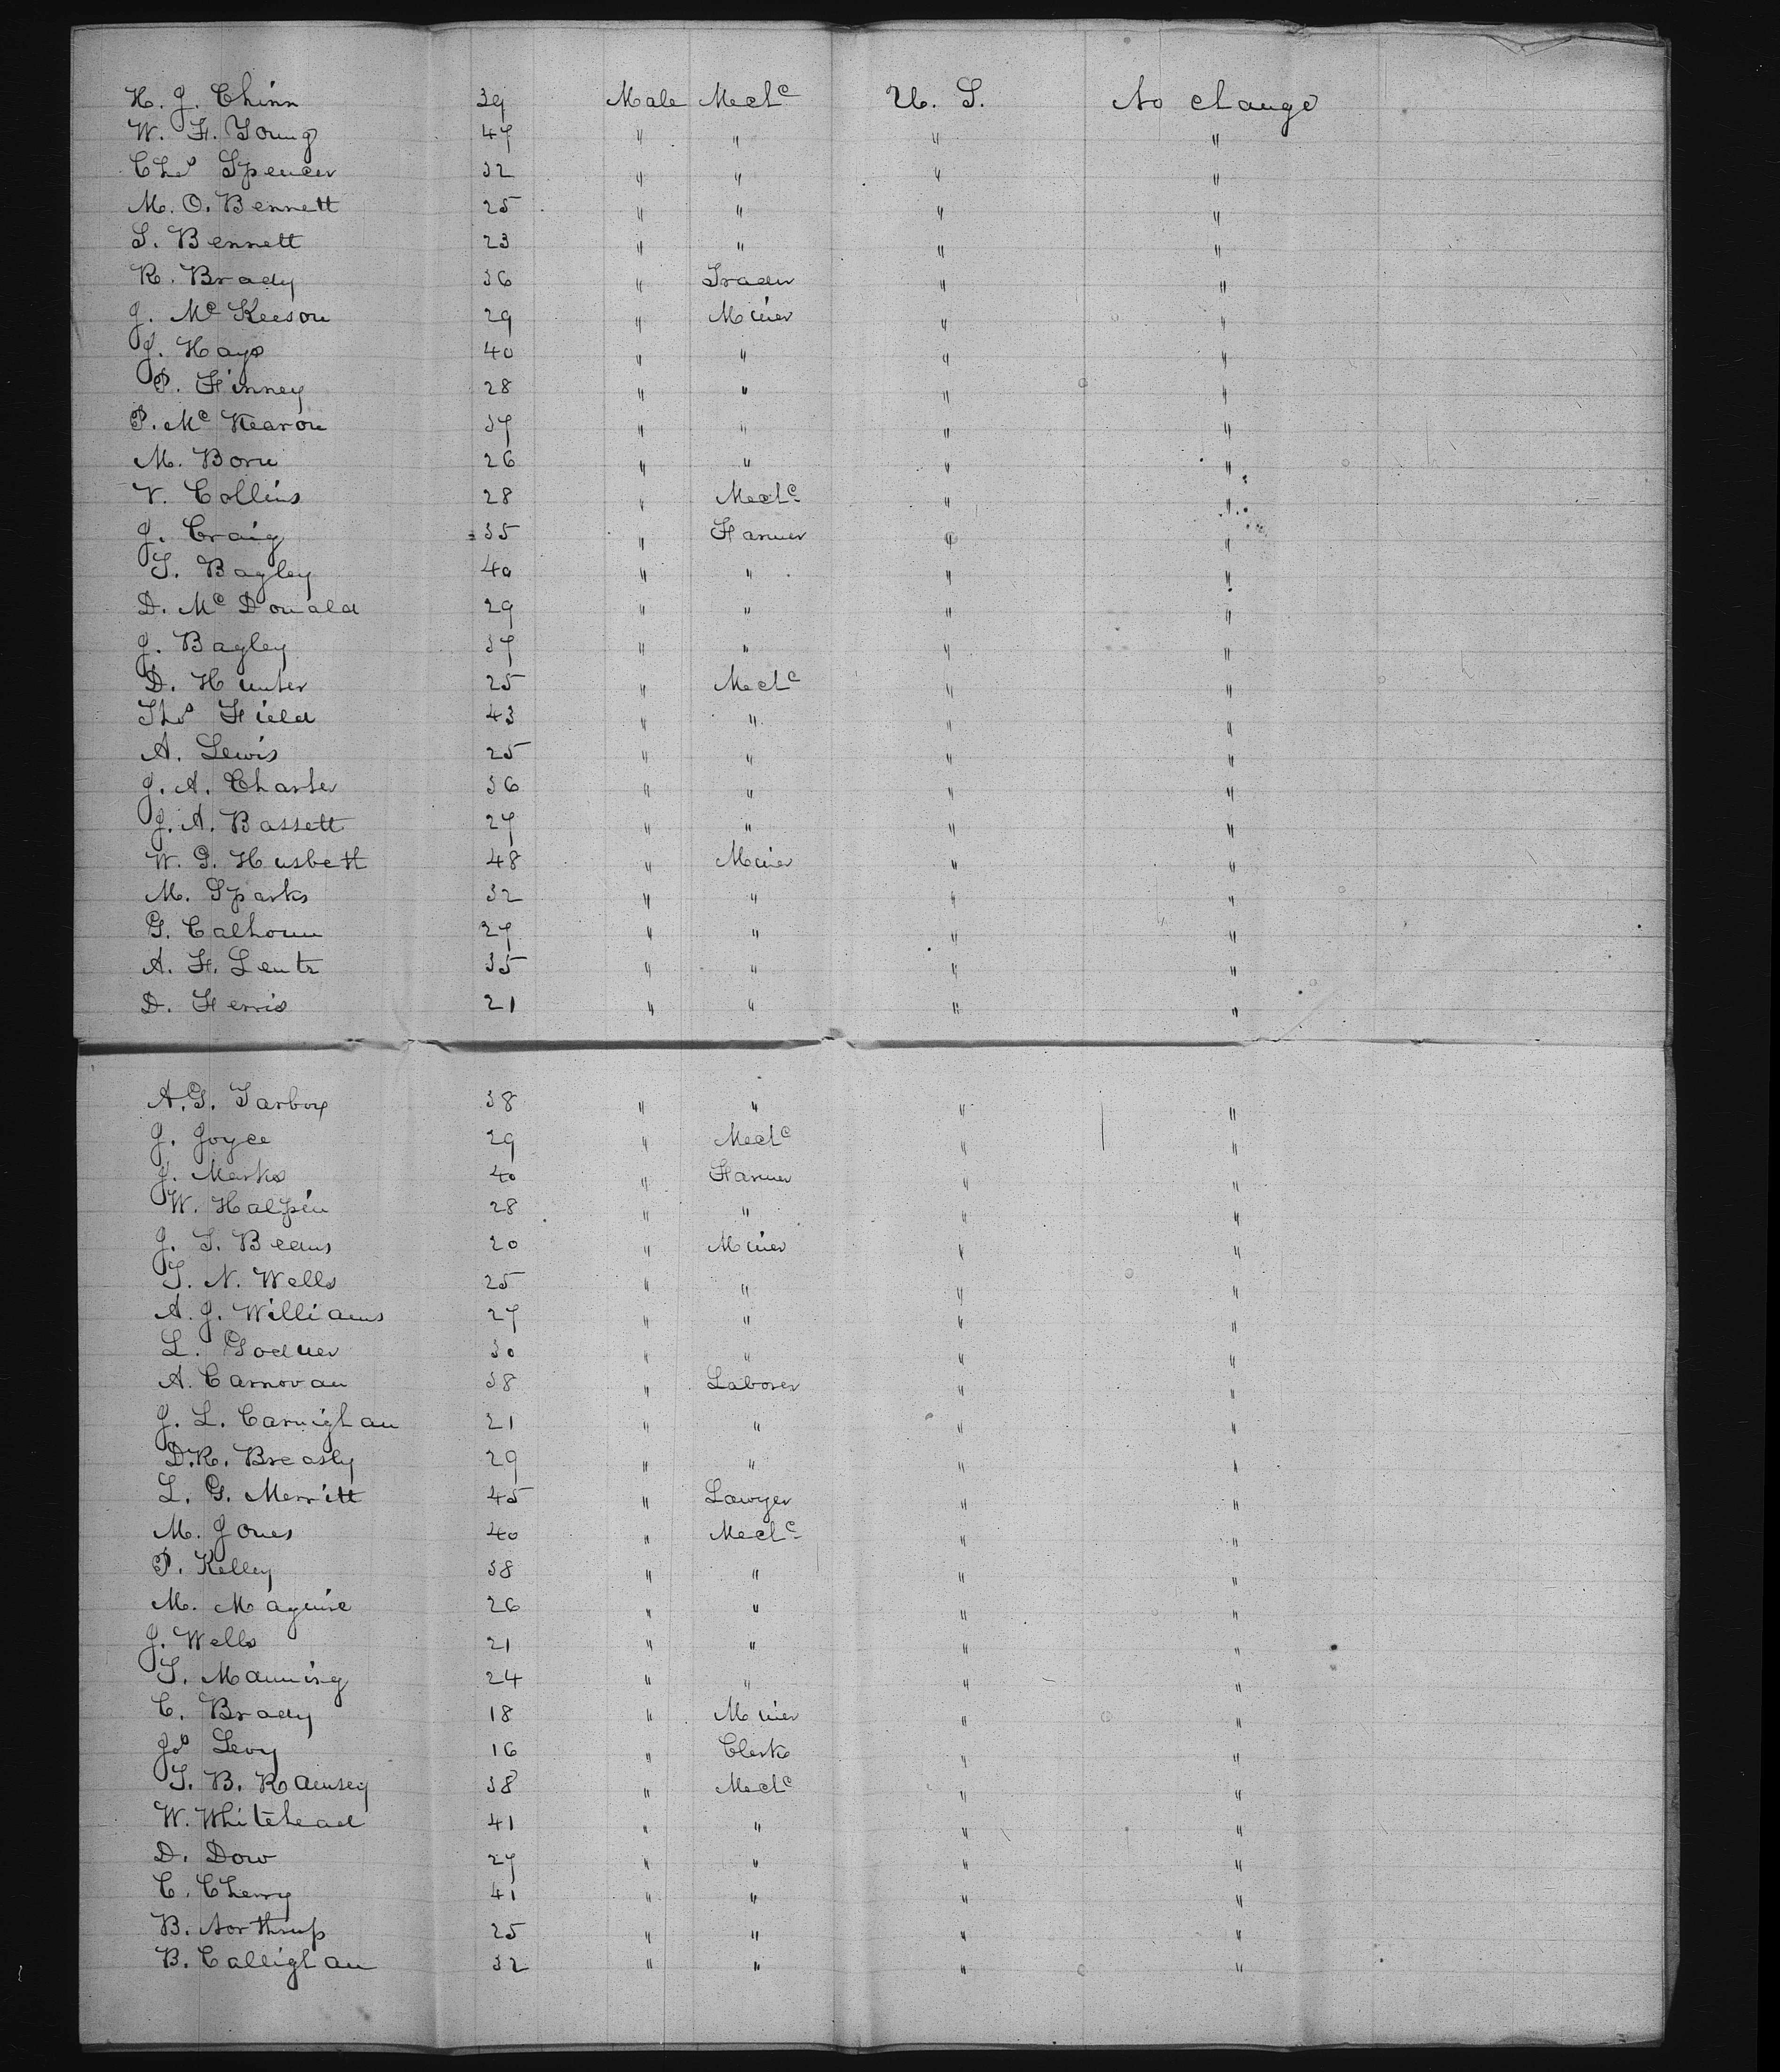 H. J. Chinn 39 Male Mechc U. S. No change
W. F. Young 47 " " " "
Chs Spencer 32 " " " "
M. O. Bennett 25 " " " "
S. Bennett 23 " " " "
R. Brady 36 " Trader " "
J. Mc Keeson 29 " Miner " "
J. Hays 40 " " " "
P. Finney 28 " " " "
P. Mc Kearon 37 " " " "
M. Born 26 " " " "
V. Collins 28 " Mechc " "
J. Craig 35 " Farmer " "
T. Bagley 40 " " " "
D. Mc Donald 29 " " " "
J. Bagley 37 " " " "
D. Hunter 25 " Mechc " "
Ths Field 43 " " " "
A. Lewis 25 " " " "
J. A. Charter 36 " " " "
J. A. Bassett 27 " " " "
W. G. Husbett 48 " Miner " "
M. Sparks 32 " " " "
G. Calhoun 27 " " " "
A. F. Lentz 35 " " " "
D. Ferris 21 " " " "
A. G. Tarbox 38 " " " "
J. Joyce 29 " Mechc " "
J. Marks 40 " Farmer " "
W. Halpin 28 " " " "
J. S. Beans 20 " Miner " "
T. N. Wells 25 " " " "
A. J. Williams 27 " " " "
L. Goduer 30 " " " "
A. Carnovan 38 " Laborer " "
J. L. Carnighan 21 " " " "
D. R. Breasly 29 " " " "
L. G. Merritt 45 " Lawyer " "
M. Jones 40 " Mechc " "
P. Kelley 38 " " " "
M. Maguire 26 " " " "
J. Wells 21 " " " "
T. Manning 24 " " " "
C. Brady 18 " Miner " "
Js Levy 16 " Clerk " "
T. B. Ramsey 38 " Mechc " "
W. Whitehead 41 " " " "
D. Dow 27 " " " "
C. Cherry 41 " " " "
B. Northrup 25 " " " "
B. Callighan 32 " " " "